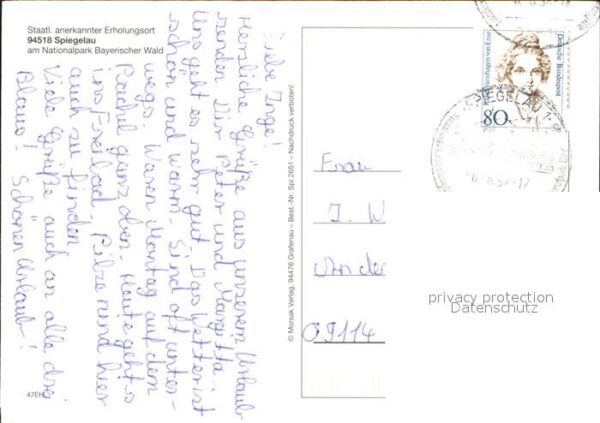 Staatl. anerkannter Erholungsort
94518 Spiegelau
am Nationalpark Bayerischer Wald
Liebe Inge!
Herzliche Grüße aus unserem Urlaub
senden Dir Peter und Margitta.
Uns geht es sehr gut. Das Wetter ist
schön und warm. Sind oft unter-
wegs. Waren Montag auf dem
Rachel ganz oben. Heute geht's
ins Freibad. Pilze sind hier
auch zu finden
Viele Grüße auch an alle drei
Blaus! Schönen Urlaub!
47EH
© Morsak Verlag, 94476 Grafenau – Best.-Nr. Spi 2651 – Nachdruck verboten!
Deutsche Bundespost
Rahel Varnhagen von Ense
80
SPIEGELAU 1
Frau
I. W
An der
09114
privacy protection
Datenschutz